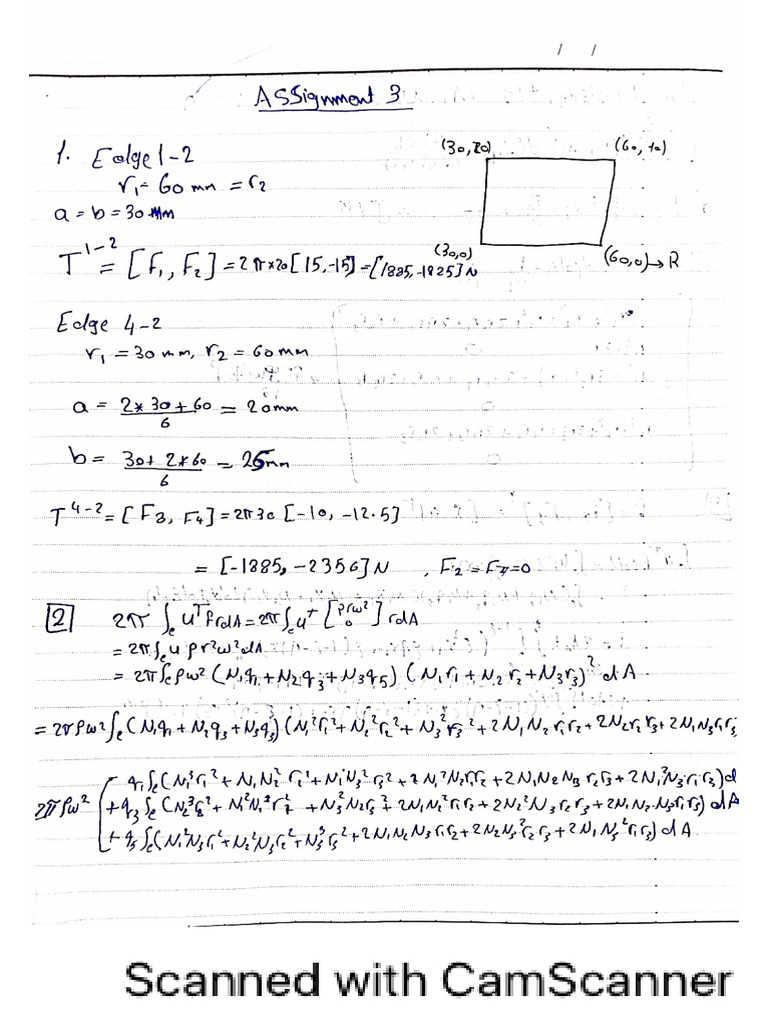 / /
Assignment 3
1. Edge 1-2
r₁ = 60 mm = r₂
a = b = 30 mm
T¹⁻² = [F₁, F₂] = 2π×20[15, -15] = [1885, -1825]N
(30,20) (60,10)
(30,0) (60,0)→R
Edge 4-2
r₁ = 30 mm, r₂ = 60 mm
a = 2*30+60/6 = 20mm
b = 30+2*60/6 = 25mm
T⁴⁻² = [F3, F₄] = 2π30 [-10, -12.5]
= [-1885, -2356]N , F₂ = F₇ = 0
2 2π ∫ₑ uᵀPrdA = 2π∫ₑ uᵀ [ρrω² 0] rdA
= 2π∫ₑ u ρr²ω²dA
= 2π∫ₑ ρω² (N₁q₁ + N₂q₃ + N₃q₅) (N₁r₁ + N₂r₂ + N₃r₃)² dA
= 2πρω²∫ₑ(N₁q₁ + N₂q₃ + N₃q₅)(N₁²r₁² + N₂²r₂² + N₃²r₃² + 2N₁N₂r₁r₂ + 2N₂r₂r₃ + 2N₁N₃r₁r₃
q₁∫ₑ(N₁³r₁² + N₁N₂²r₂² + N₁N₃²r₃² + 2N₁²N₂r₁r₂ + 2N₁N₂N₃r₂r₃ + 2N₁²N₃r₁r₃)d
2πρω² + q₃∫ₑ(N₂³r₂² + N₁²r₁² + N₃²N₂r₃² + 2N₁N₂²r₁r₂ + 2N₂²N₃r₂r₃ + 2N₁N₂N₃r₁r₃)dA
+ q₅∫ₑ(N₁²N₃r₁² + N₂²N₃r₂² + N₃³r₃² + 2N₁N₂N₃r₁r₂ + 2N₂N₃²r₂r₃ + 2N₁N₃²r₁r₃)dA
Scanned with CamScanner